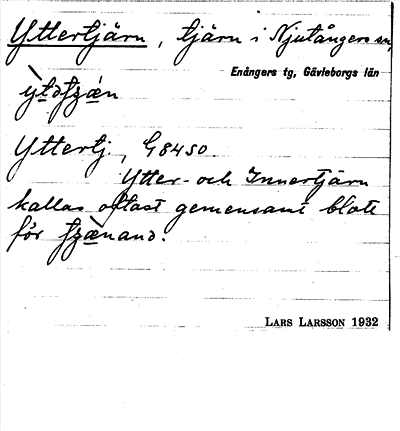 Yttertjärn, tjärn i Njutångers sn,
Enångers tg, Gävleborgs län
Yttertj., G8450
Ytter- och Innertjärn
kallas oftast gemensamt blott
för
LARS LARSSON 1932